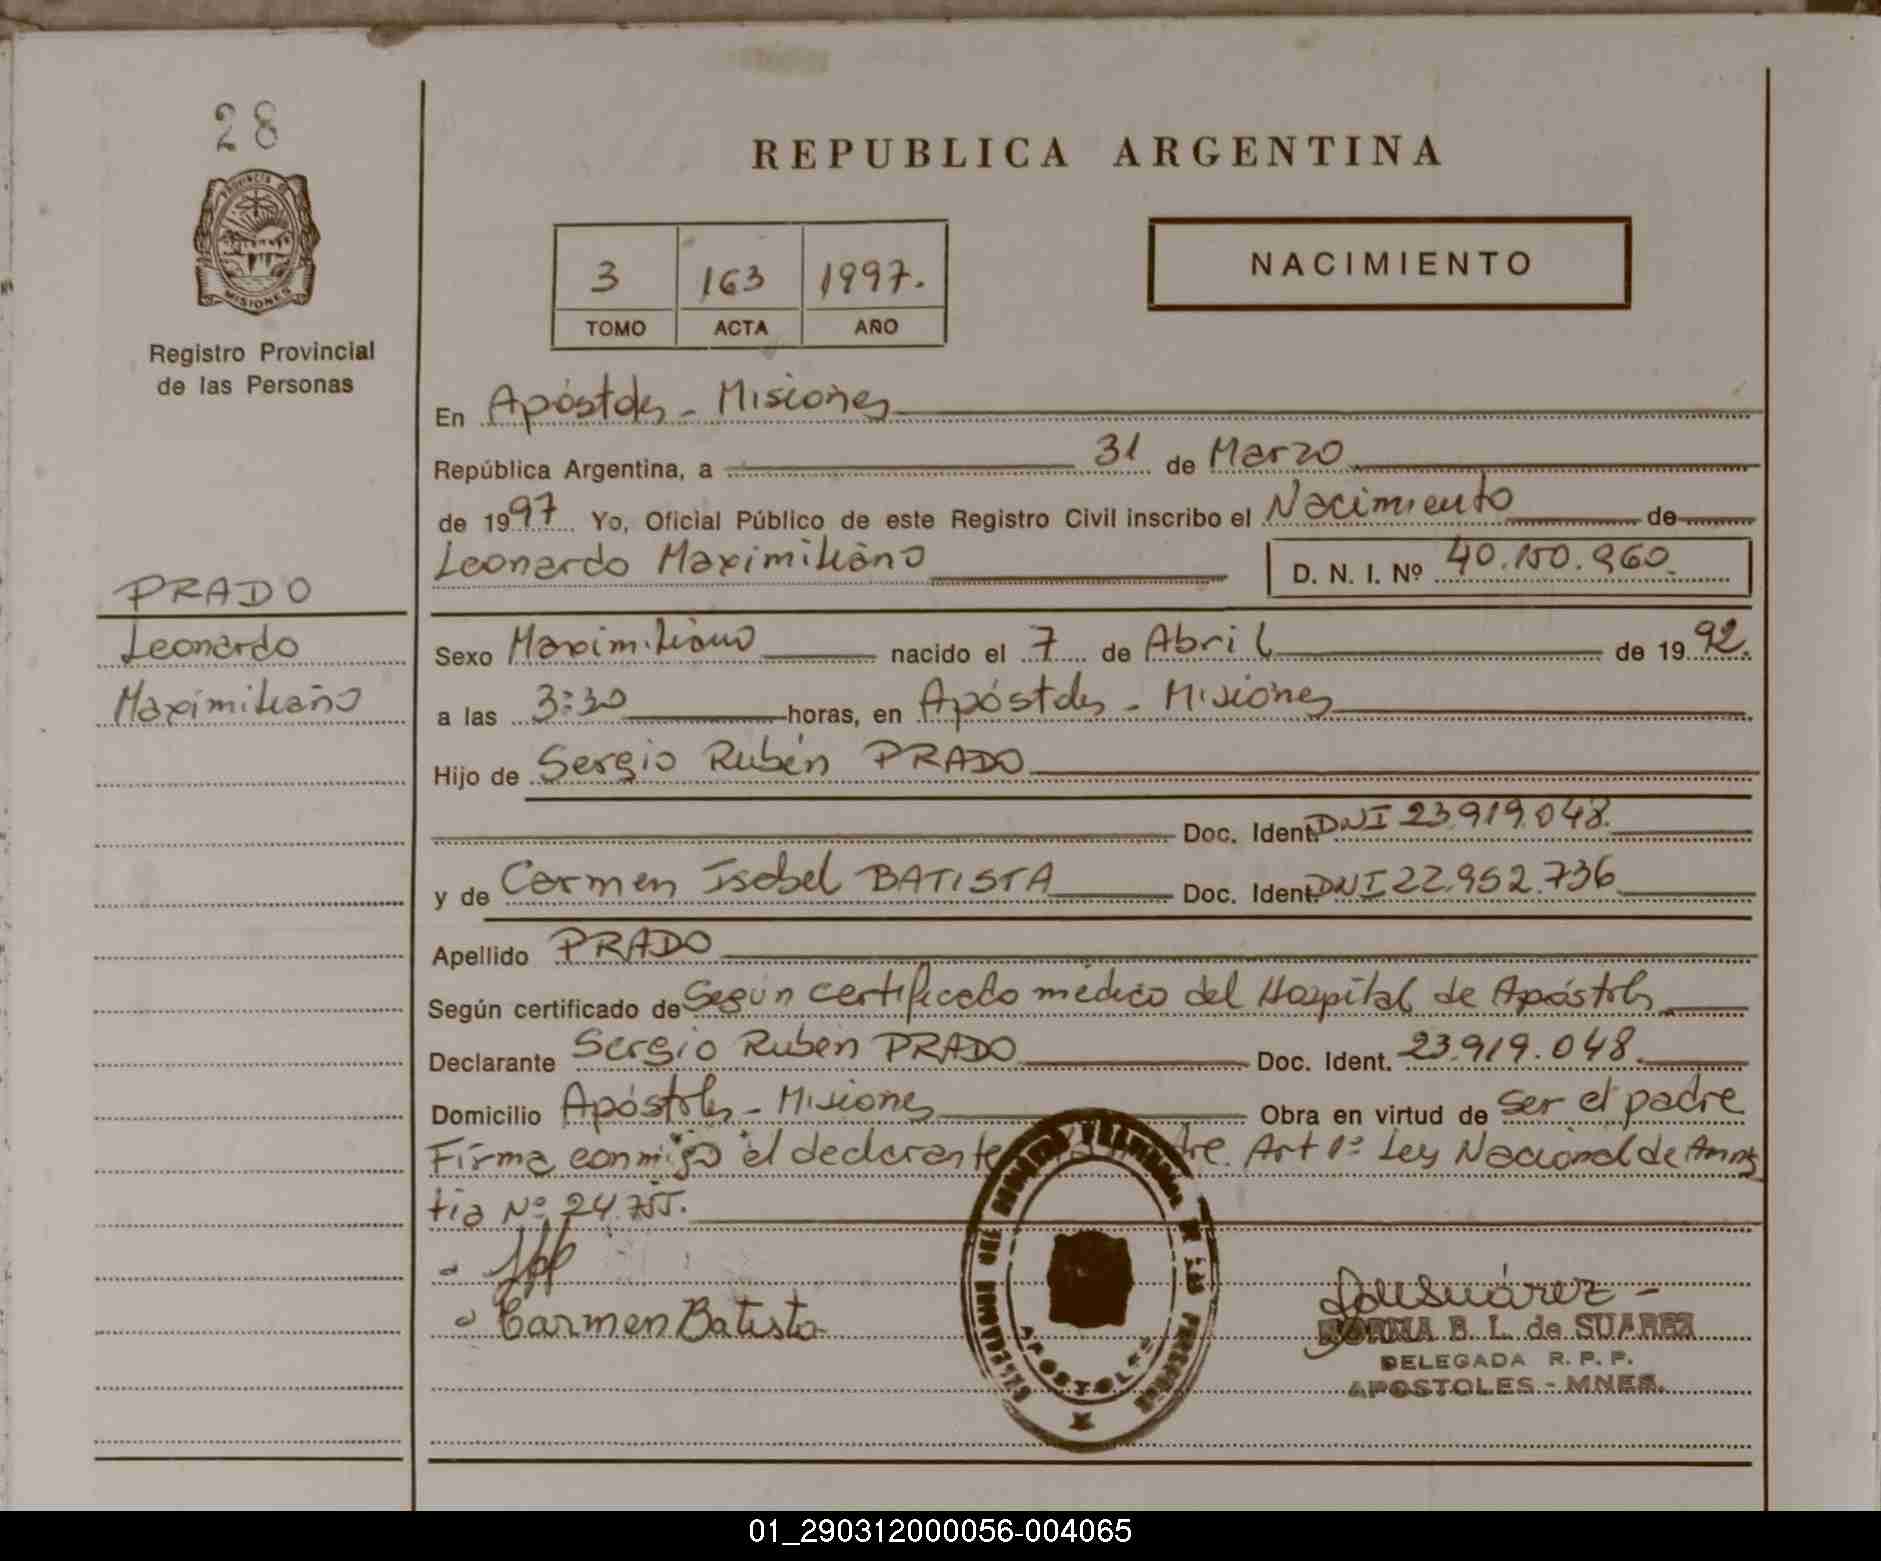 28
PROVINCIA DE
MISIONES
Registro Provincial
de las Personas
PRADO
Leonardo
Maximiliano
REPUBLICA ARGENTINA
3 163 1997.
TOMO ACTA AÑO
NACIMIENTO
En Apóstoles - Misiones
República Argentina, a 31 de Marzo
de 1997 Yo, Oficial Público de este Registro Civil inscribo el Nacimiento de
Leonardo Maximiliano D. N. I. Nº 40.150.960.
Sexo Maximiliano nacido el 7 de Abril de 1992.
a las 3:30 horas, en Apóstoles - Misiones
Hijo de Sergio Rubén PRADO
Doc. Ident. DNI 23.919.048.
y de Carmen Isabel BATISTA Doc. Ident. DNI 22.952.736
Apellido PRADO
Según certificado de Según certificado médico del Hospital de Apóstoles
Declarante Sergio Rubén PRADO Doc. Ident. 23.919.048.
Domicilio Apóstoles - Misiones Obra en virtud de ser el padre
Firma conmigo el declarante Art 1º Ley Nacional de Amnis
tia Nº 24.755.
Carmen Batista
APOSTOLES
NORMA B. L. de SUAREZ
DELEGADA R. P. P.
APOSTOLES - MNES.
01_290312000056-004065